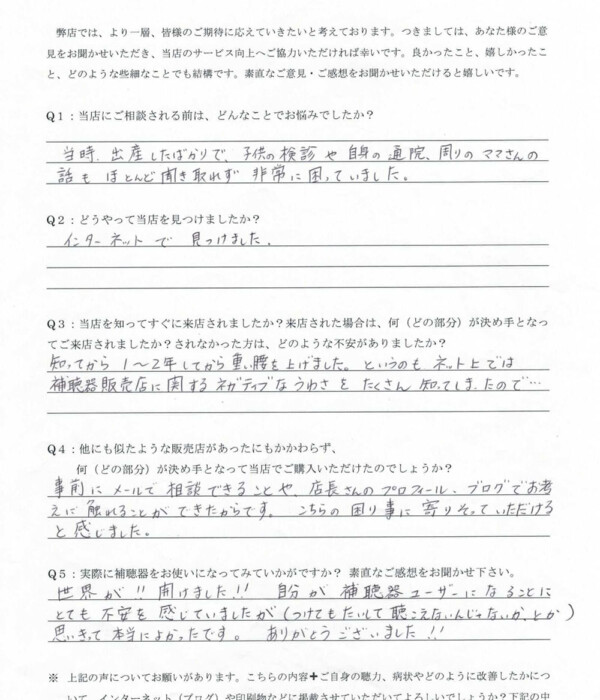 弊店では、より一層、皆様のご期待に応えていきたいと考えております。つきましては、あなた様のご意
見をお聞かせいただき、当店のサービス向上へご協力いただければ幸いです。良かったこと、嬉しかったこ
と、どのような些細なことでも結構です。素直なご意見・ご感想をお聞かせいただけると嬉しいです。
Q1：当店にご相談される前は、どんなことでお悩みでしたか？
当時、出産したばかりで、子供の検診や自身の通院、周りのママさんの
話もほとんど聞き取れず非常に困っていました。
Q2：どうやって当店を見つけましたか？
インターネットで見つけました。
Q3：当店を知ってすぐに来店されましたか？来店された場合は、何（どの部分）が決め手となっ
てご来店されましたか？されなかった方は、どのような不安がありましたか？
知ってから1～2年してから重い腰を上げました。というのもネット上では
補聴器販売店に関するネガティブなうわさをたくさん知ってしまったので…
Q4：他にも似たような販売店があったにもかかわらず、
何（どの部分）が決め手となって当店でご購入いただけたのでしょうか？
事前にメールで相談できることや、店長さんのプロフィール、ブログでお考
えに触れることができたからです。こちらの困り事に寄りそっていただける
と感じました。
Q5：実際に補聴器をお使いになってみていかがですか？ 素直なご感想をお聞かせ下さい。
世界が!!開けました!!自分が補聴器ユーザーになることに
とても不安を感じていましたが(つけてもたいして聴こえないんじゃないか、とか)
思いきって本当によかったです。ありがとうございました!!
※ 上記の声についてお願いがあります。こちらの内容+ご自身の聴力、病状やどのように改善したかにつ
いて、インターネット（ブログ）や印刷物などに掲載させていただいてよろしいでしょうか？下記の中